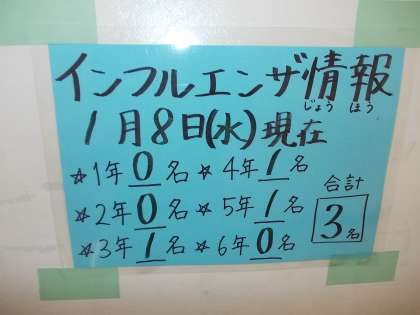 インフルエンザ情報
じょう ほう
1月8日(水)現在
☆1年0名 ☆4年1名
☆2年0名 ☆5年1名
☆3年1名 ☆6年0名
合計
3名